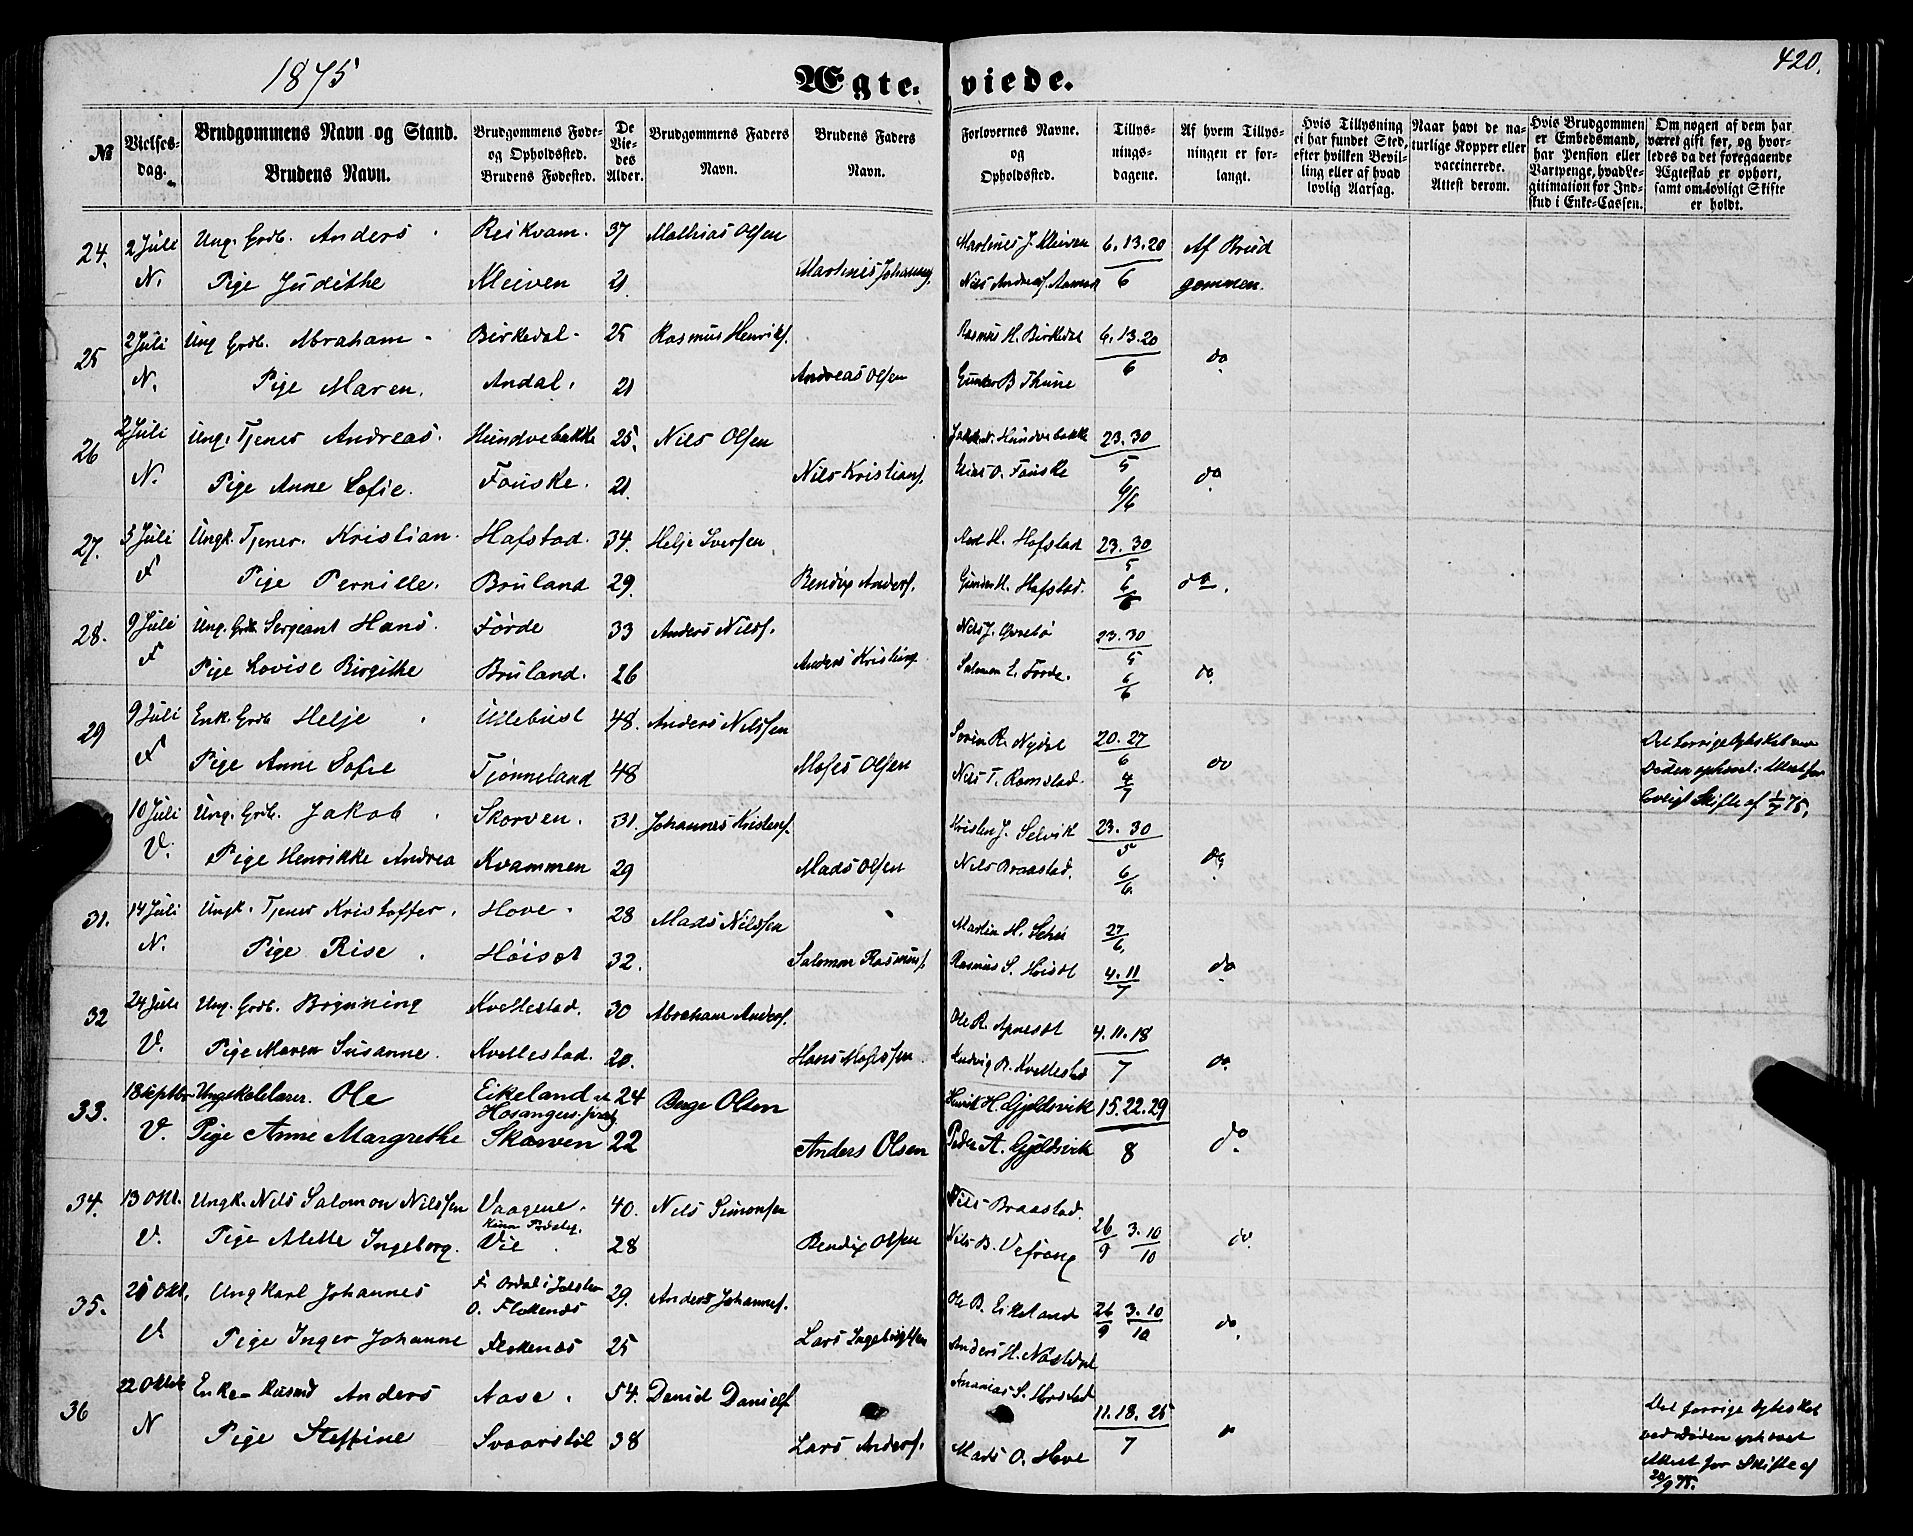 1875
Ægte- viede.
420.
№
Vielses-
dag.
Brudgommens Navn og Stand.
Brudens Navn.
Brudgommens Føde-
og Opholdssted.
Brudens Fødested.
De
Vie-
des
Alder.
Brudgommens Faders
Navn.
Brudens Faders
Navn.
Forlovernes Navne.
og
Opholdssted.
Tillys-
nings-
dagene.
Af hvem Tillys-
ningen er for-
langt.
Hvis Tillysning
ei har fundet Sted,
efter hvilken Bevil-
ling eller af hvad
lovlig Aarsag.
Naar havt de na-
turlige Kopper eller
vaccinerede.
Attest derom.
Hvis Brudgommen
er Embedsmand,
har Pension eller
Vartpenge, hvad Le-
gitimation for Ind-
skud i Enke-Cassen.
Om nogen af dem har
været gift før, og hvor-
ledes da det foregaaende
Ægteskab er ophørt,
samt om lovligt Skifte
er holdt.
24. 2 Juli Ung. Grdb. Anders Reikvam. 37 Mathias Olsen Martines J. Kleiven 6.13.20 Af Brud
N. Pige Judithe Kleiven 21 Martinis Johannes. Nils Andreas. 6 gommen.
25 2 Juli Ung Grdb. Abraham Birkedal 25 Rasmus Henriks. Rasmus H. Birkedal 6.13.20
N. Pige Maren. Andal. 21 Andreas Olsen Gunder B Thune 6 do
26 2 Juli Ung. Tjener Andreas. Hundvebakke 25. Nils Olsen Hundvebakke 23.30
N. Pige Anne Sofie. Fauske. 21. Nils Kristians. Elias O. Fauske 5 6/6 do
27. 3 Juli Ungk. Tjener. Kristian. Hafstad. 34. Helje Iversen H. Hafstad 23.30
F Pige Pernille. Bruland 29. Bendix Anders. Gunder H. Hafstad. 5 6/6 do.
28. 9 Juli Ung. Grdb. Sergeant Hans. Førde 33 Anders Nils. Nils J. 23.30
F Pige Lovise Birgithe Bruland. 26 Anders Kristians. Salomon E. Førde. 5 6/6 do
29 9 Juli Enk. Grdb Helje Ullebust 48. Anders Nilssen Søren R. Nydal 20.27 Det forrige Egteskab ved
F Pige Anne Sofie Tjønneland 48 Moses Olsen Nils T. Ramstad. 6 4/7 do Døden ophævet. Attest for
lovligt Skifte af 1/7 75.
10 Juli Ung. Grdb. Jakob Skorven. 31. Johannes Kristens. Kristen J. Selvik 23.30
V. Pige Henrikke Andrea Kvammen 29 Mads Olsen Nils Braastad. 5 6/6. do
31. 14 Juli Ungk. Tjener Kristoffer. Hove. 28 Mads Nilssen Martin H. Schei 27/6
N. Pige Rise Høiset 32. Salomon Rasmus. Rasmus S. Høiset 4.11/7 do
32 24 Juli Ung. Grdb. Brynning Kvellestad. 30 Abraham Anders. Ole R. 4.11.18
V. Pige Maren Susanne. Kvellestad. 20. Hans Mosessen Ludvig B. Kvellestad 7 do
33. 1 Septbr Ungk. Ole Eikeland 24 Berge Olsen Henrik H. Gjeldsvik 15.22.29
Hosangers
V. Pige Anne Margrethe Skorven 22 Anders Olsen Peder A. Gjeldsvik 8 do
34. 13 Okt. Ungk. Nils Salomon Nilssen Vaagene. 40. Nils Simonsen Nils Braastad. 26/9 3.10/10
Kinn
V. Pige Alette Ingeborg. Vie 28 Bendix Olsen Nils B. Vefring do
35. Okt. Ungkarl Johannes F. Ordal i Jølster 29. Anders Johannes. Ole B. Eikeland 26/9 3.10/10 do
O. Flokenæs
V. Pige Inger Johanne Flokenæs 25 Lars Ingebrigtsen Anders H. Næsledal
36 22 Oktbr Enke- Husmd Anders Aase. 54. Daniel Daniels. Ananias S. 11.18.25 Det forrige Egteskab
N Pige Steffine Svaarstøl 38 Lars Anders. Mads O. Hove 7 do ved Døden ophævet
Attest for Skifte af
20/9 75.